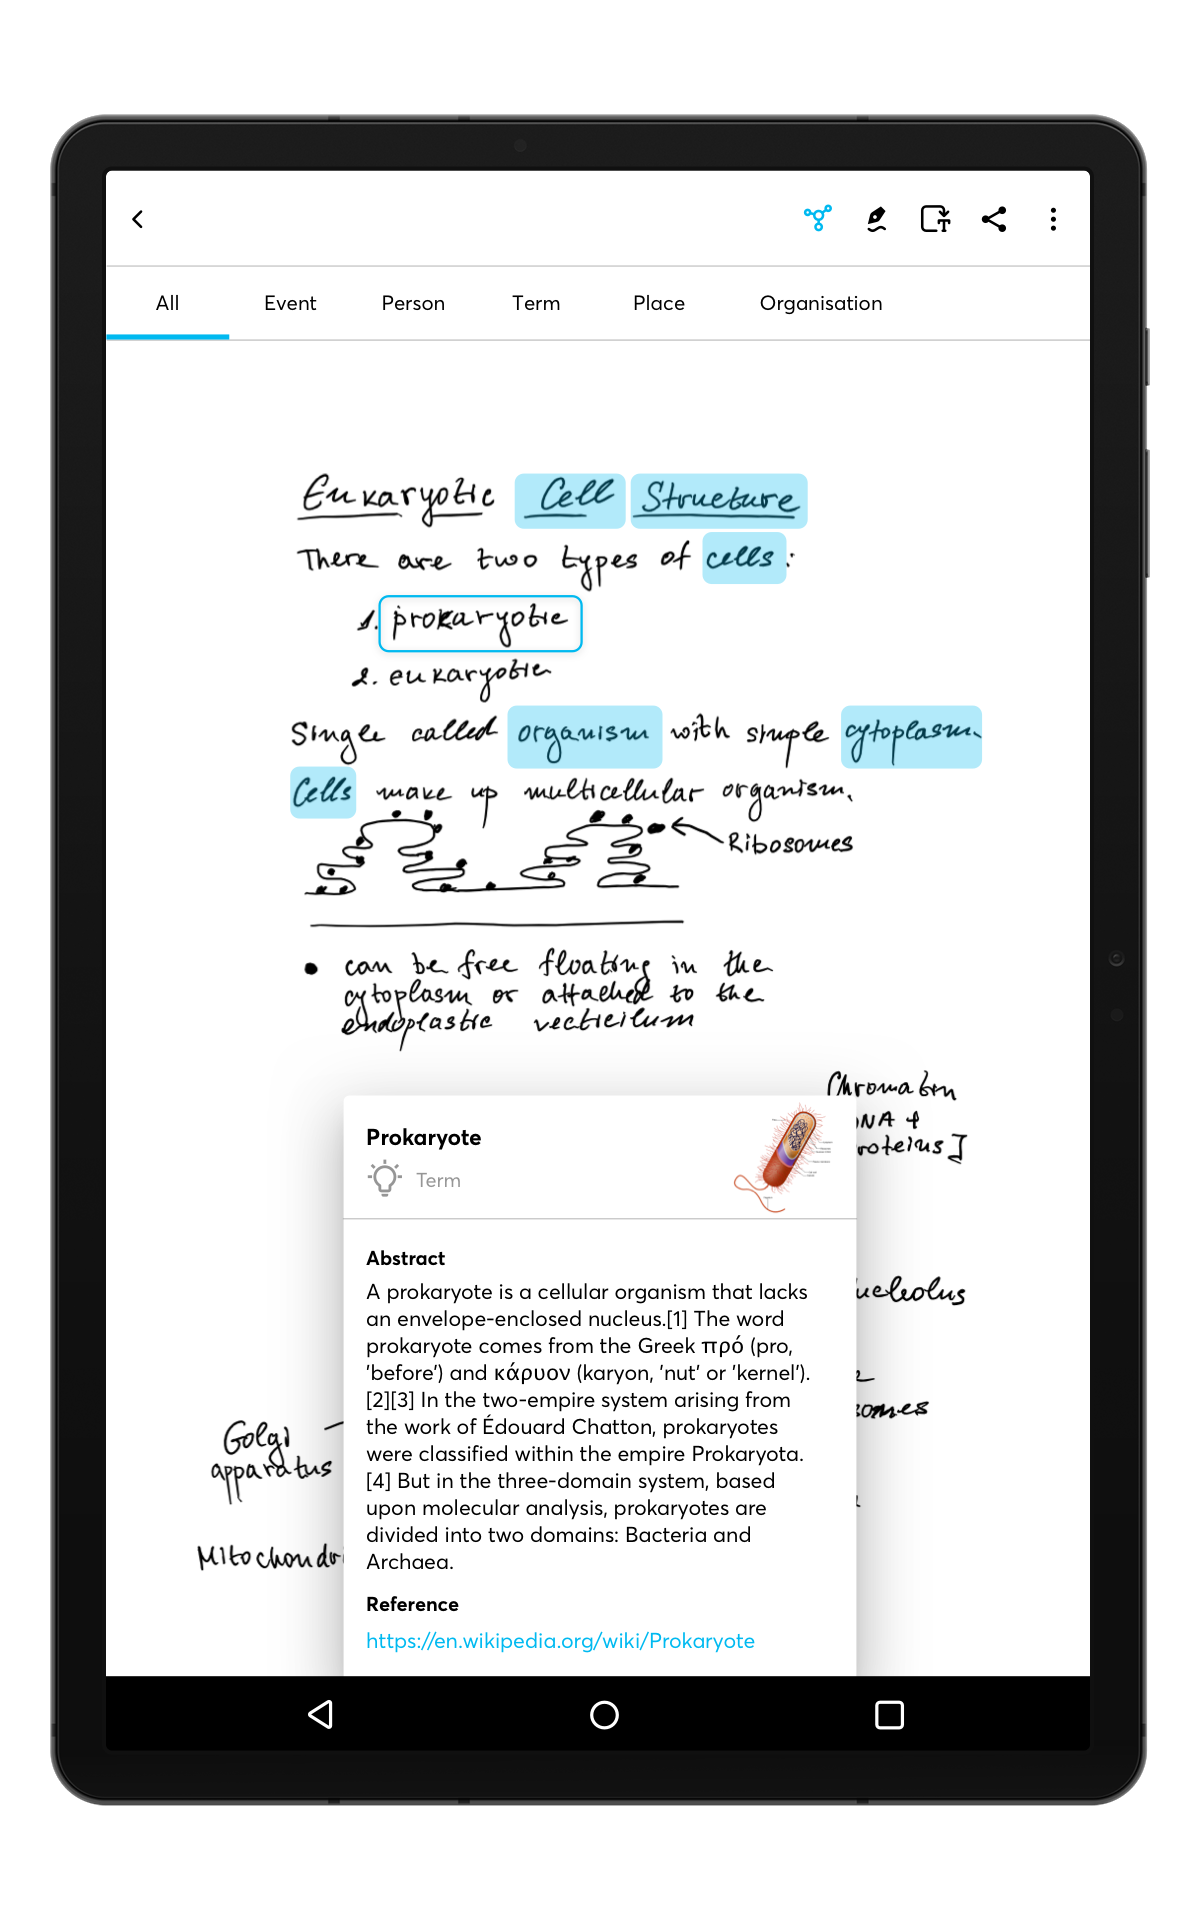 All Event Person Term Place Organisation
Eukaryotic Cell Structure
There are two types of cells:
1. prokaryotic
2. eukaryotic
Single called organism with simple cytoplasm.
Cells make up multicellular organism.
Ribosomes
• can be free floating in the
cytoplasm or attached to the
endoplastic
Chromatin
DNA +
roteins]
ucleolus
somes
Golgi
apparatus
Mitochondri
Prokaryote
Term
Abstract
A prokaryote is a cellular organism that lacks
an envelope-enclosed nucleus.[1] The word
prokaryote comes from the Greek πρό (pro,
'before') and κάρυον (karyon, 'nut' or 'kernel').
[2][3] In the two-empire system arising from
the work of Édouard Chatton, prokaryotes
were classified within the empire Prokaryota.
[4] But in the three-domain system, based
upon molecular analysis, prokaryotes are
divided into two domains: Bacteria and
Archaea.
Reference
https://en.wikipedia.org/wiki/Prokaryote